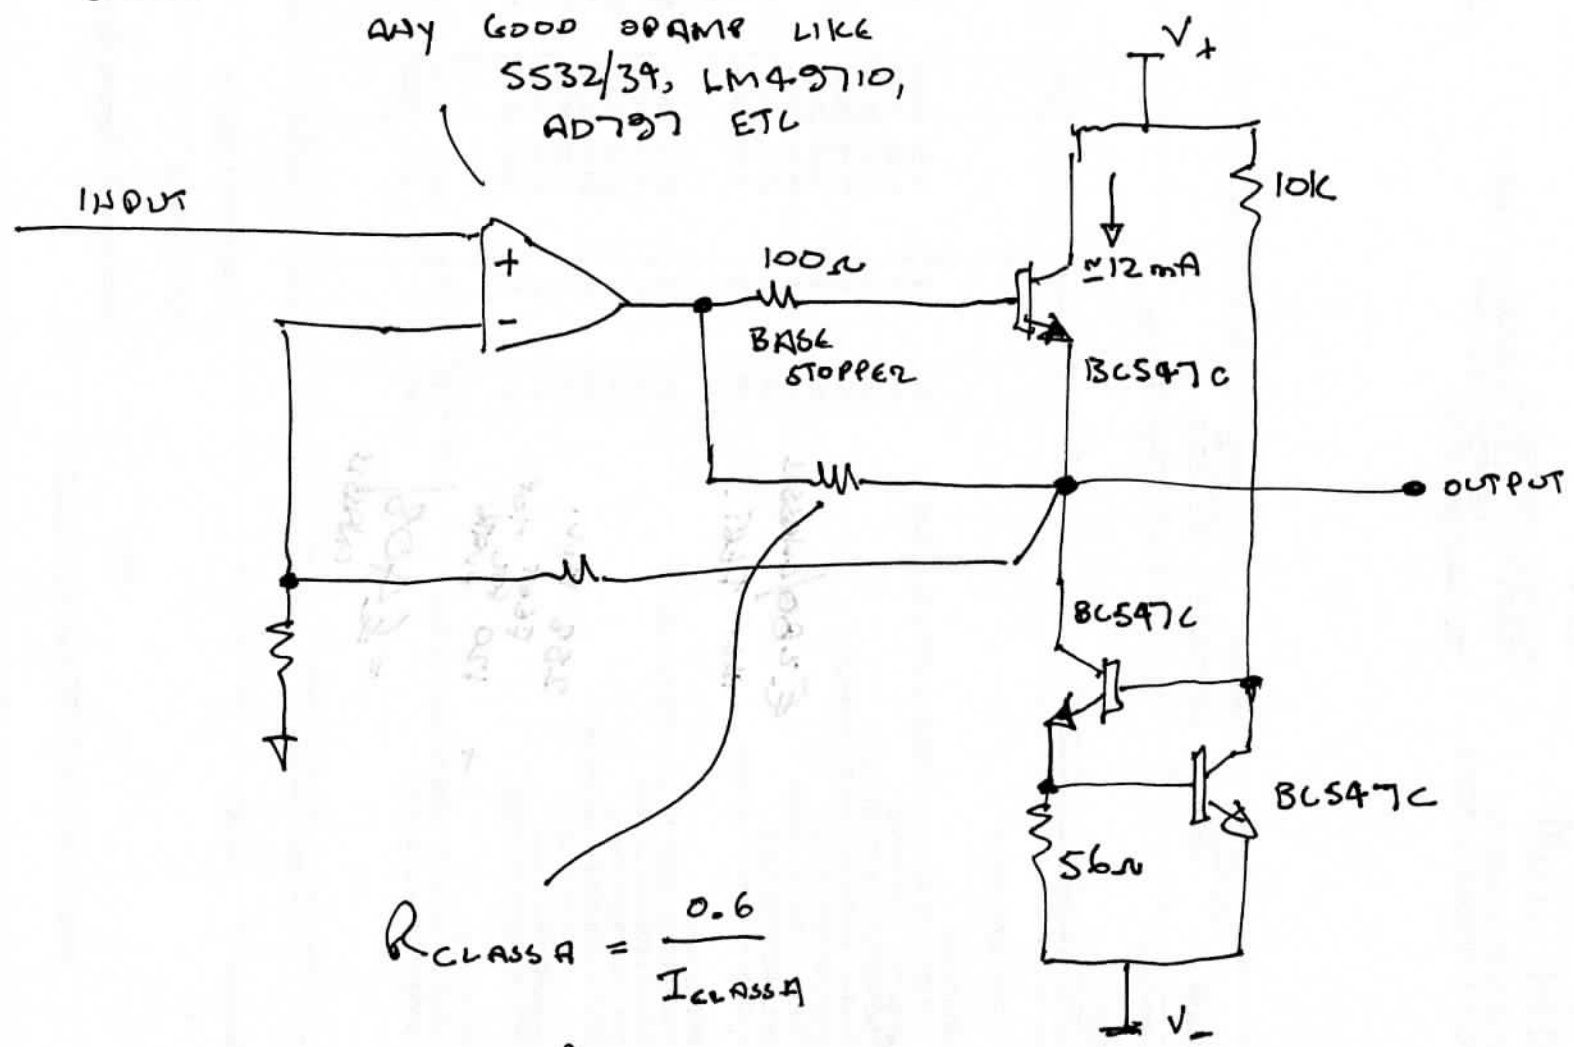 ANY GOOD OPAMP LIKE
5532/34, LM49710,
AD797 ETC
V+
INPUT
10K
+
-
100Ω
≈12mA
BASE
STOPPER
BC547C
OUTPUT
BC547C
BC547C
56Ω
RCLASSA = 0.6
ICLASSA
V-